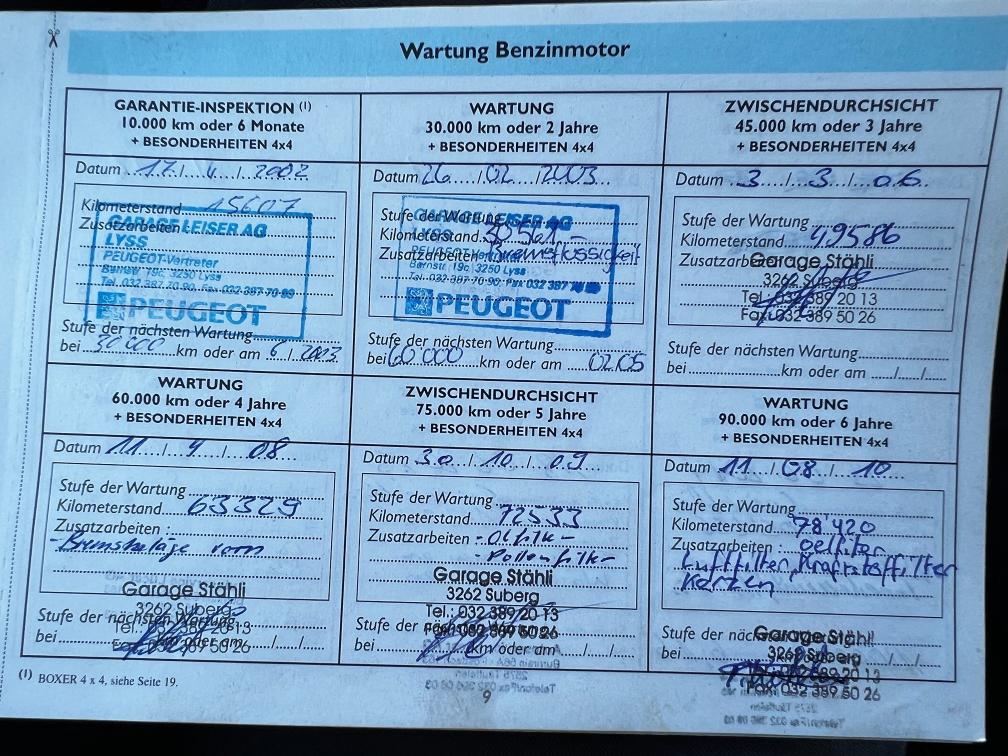 Wartung Benzinmotor
GARANTIE-INSPEKTION (1)
10.000 km oder 6 Monate
+ BESONDERHEITEN 4x4
Datum 17 / 4 / 2002
Kilometerstand 15607
Zusatzarbeiten
GARAGE LEISER AG
LYSS
PEUGEOT-Vertreter
Bernstr. 19c, 3250 Lyss
Tel. 032 387 70 90, Fax 032 387 70 89
PEUGEOT
Stufe der nächsten Wartung
bei 30000 km oder am 6 / 2003
WARTUNG
30.000 km oder 2 Jahre
+ BESONDERHEITEN 4x4
Datum 26 / 02 / 2003
Stufe der Wartung
Kilometerstand 30561 -
Zusatzarbeiten Bremsflüssigkeit
GARAGE LEISER AG
LYSS
Bernstr. 19c, 3250 Lyss
Tel. 032 387 70 90, Fax 032 387 70 89
PEUGEOT
Stufe der nächsten Wartung
bei 60.000 km oder am 02.05
ZWISCHENDURCHSICHT
45.000 km oder 3 Jahre
+ BESONDERHEITEN 4x4
Datum 3 / 3 / 06
Stufe der Wartung
Kilometerstand 49586
Zusatzarbeiten
Garage Stähli
3262 Suberg
Tel. 032 389 20 13
Fax 032 389 50 26
Stufe der nächsten Wartung
bei km oder am / /
WARTUNG
60.000 km oder 4 Jahre
+ BESONDERHEITEN 4x4
Datum 11 / 4 / 08
Stufe der Wartung
Kilometerstand 63329
Zusatzarbeiten :
- Bremsbeläge vorn
Garage Stähli
3262 Suberg
Stufe der nächsten Wartung
Tel.: 032 389 20 13
bei km oder am / /
Fax 032 389 50 26
ZWISCHENDURCHSICHT
75.000 km oder 5 Jahre
+ BESONDERHEITEN 4x4
Datum 30 / 10 / 09
Stufe der Wartung
Kilometerstand 72533
Zusatzarbeiten - Oelfilt-
- Pollenfilt-
Garage Stähli
3262 Suberg
Tel.: 032 389 20 13
Stufe der nächsten Wartung
Fax 032 389 50 26
bei km oder am / /
WARTUNG
90.000 km oder 6 Jahre
+ BESONDERHEITEN 4x4
Datum 11 / 08 / 10
Stufe der Wartung
Kilometerstand 78'420
Zusatzarbeiten : oelfilter
Luftfilter, Kraftstoffilter
Kerzen
Stufe der nächsten
Garage Stähli
bei
3262 Suberg
032 389 20 13
Fax 032 389 50 26
(1) BOXER 4 x 4, siehe Seite 19.
9